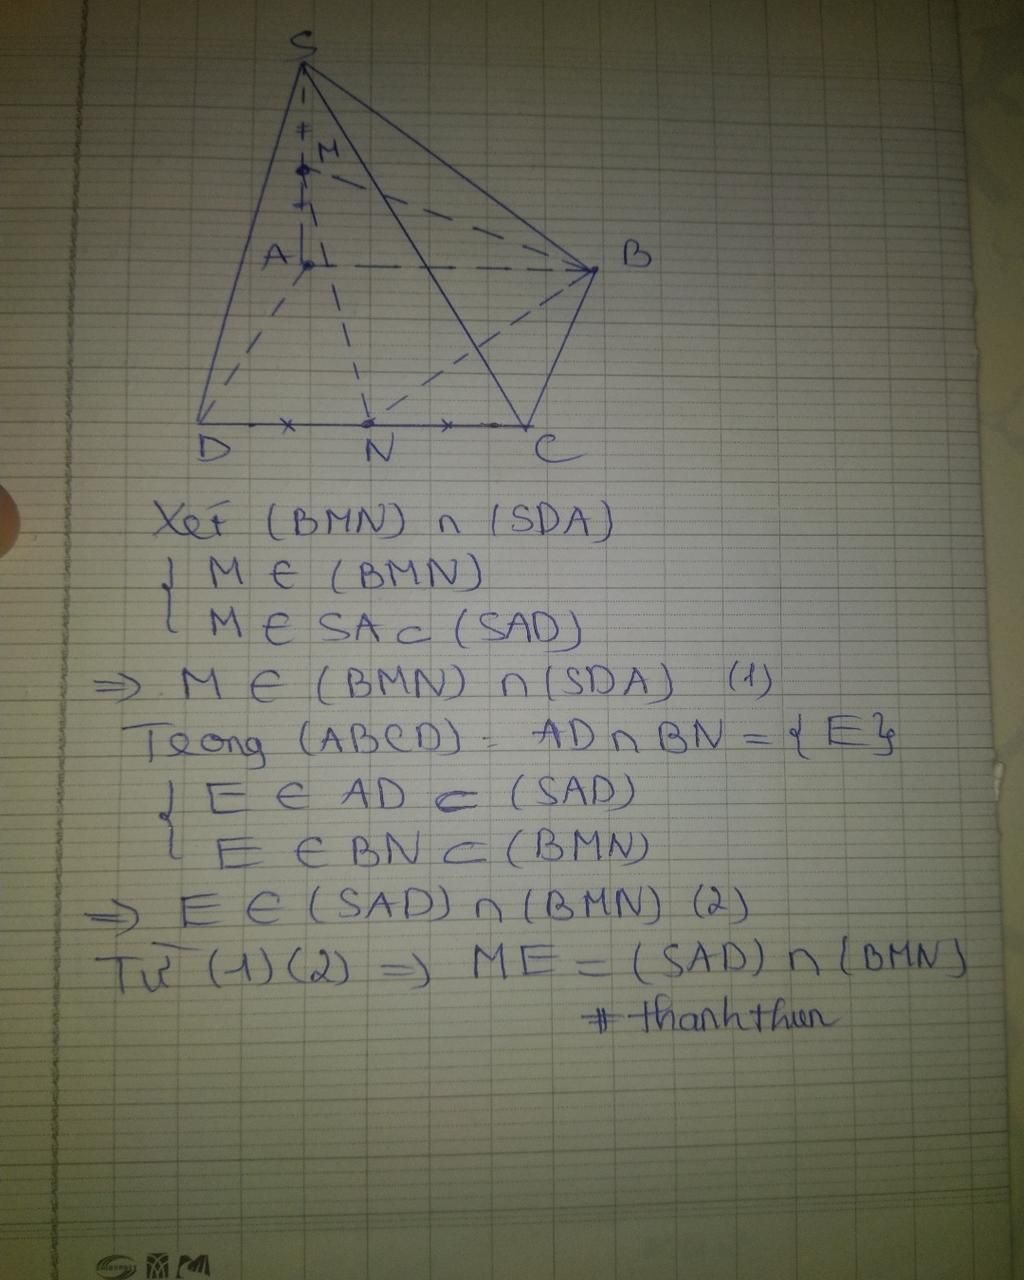 S
M
A
B
D
N
C
Xét (BMN) ∩ (SDA)
{ M ∈ (BMN)
M ∈ SA ⊂ (SAD)
=> M ∈ (BMN) ∩ (SDA) (1)
Trong (ABCD): AD ∩ BN = {E}
{ E ∈ AD ⊂ (SAD)
E ∈ BN ⊂ (BMN)
=> E ∈ (SAD) ∩ (BMN) (2)
Từ (1)(2) => ME = (SAD) ∩ (BMN)
# thanhthun